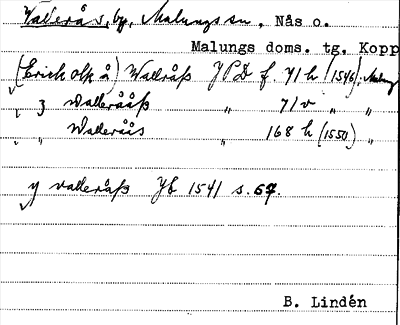 Vallerås, by, Malungs sn, Nås o.
Malungs doms. tg. Kopp
(Erich olß å) Wallråß J P D f. 71 h (1546), Malung
" 3 Wallerååß " 71 v " "
" " Walleråås " 168 h (1550) "
y valleråß Jb 1541 s. 67.
B. Lindén